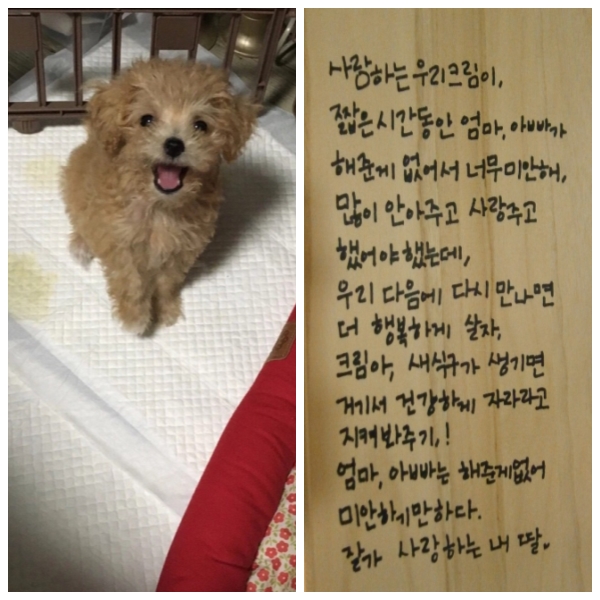 사랑하는 우리크림이,
짧은시간동안 엄마, 아빠가
해준게 없어서 너무미안해,
많이 안아주고 사랑주고
했어야했는데,
우리 다음에 다시 만나면
더 행복하게 살자,
크림아, 새식구가 생기면
거기서 건강하게 자라라고
지켜봐주기,!
엄마, 아빠는 해준게없어
미안하기만하다.
잘가 사랑하는 내 딸..